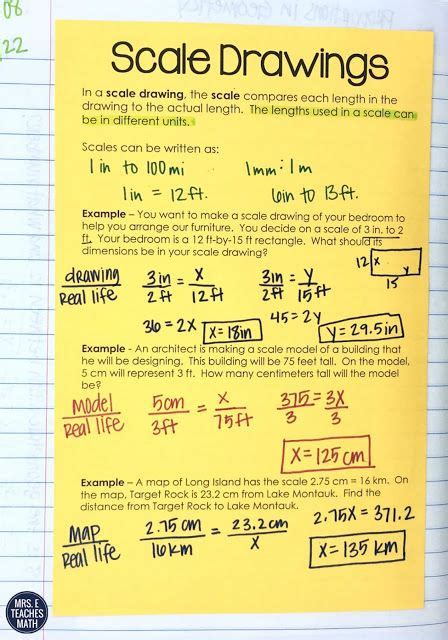 08
22
Scale Drawings
In a scale drawing, the scale compares each length in the
drawing to the actual length. The lengths used in a scale can
be in different units.
Scales can be written as:
1 in to 100 mi 1mm : 1m
1in = 12ft. 6in to 13ft.
Example – You want to make a scale drawing of your bedroom to
help you arrange our furniture. You decide on a scale of 3 in. to 2
ft. Your bedroom is a 12 ft-by-15 ft rectangle. What should its
dimensions be in your scale drawing?
12 x y 15
drawing 3in = x 3in = y
Real life 2ft 12ft 2ft 15ft
36 = 2x x = 18in 45 = 2y y = 29.5in
Example - An architect is making a scale model of a building that
he will be designing. This building will be 75 feet tall. On the model,
5 cm will represent 3 ft. How many centimeters tall will the model
be?
Model 5cm = x 375 = 3x
Real life 3ft 75ft 3 3
x = 125 cm
Example – A map of Long Island has the scale 2.75 cm = 16 km. On
the map, Target Rock is 23.2 cm from Lake Montauk. Find the
distance from Target Rock to Lake Montauk.
Map 2.75 cm = 23.2 cm 2.75x = 371.2
Real life 16km x x = 135 km
MRS. E
TEACHES
MATH